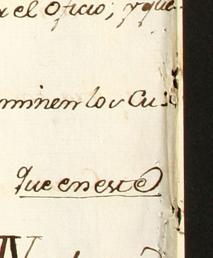 el oficio; y que
minen los Cu
Que en este